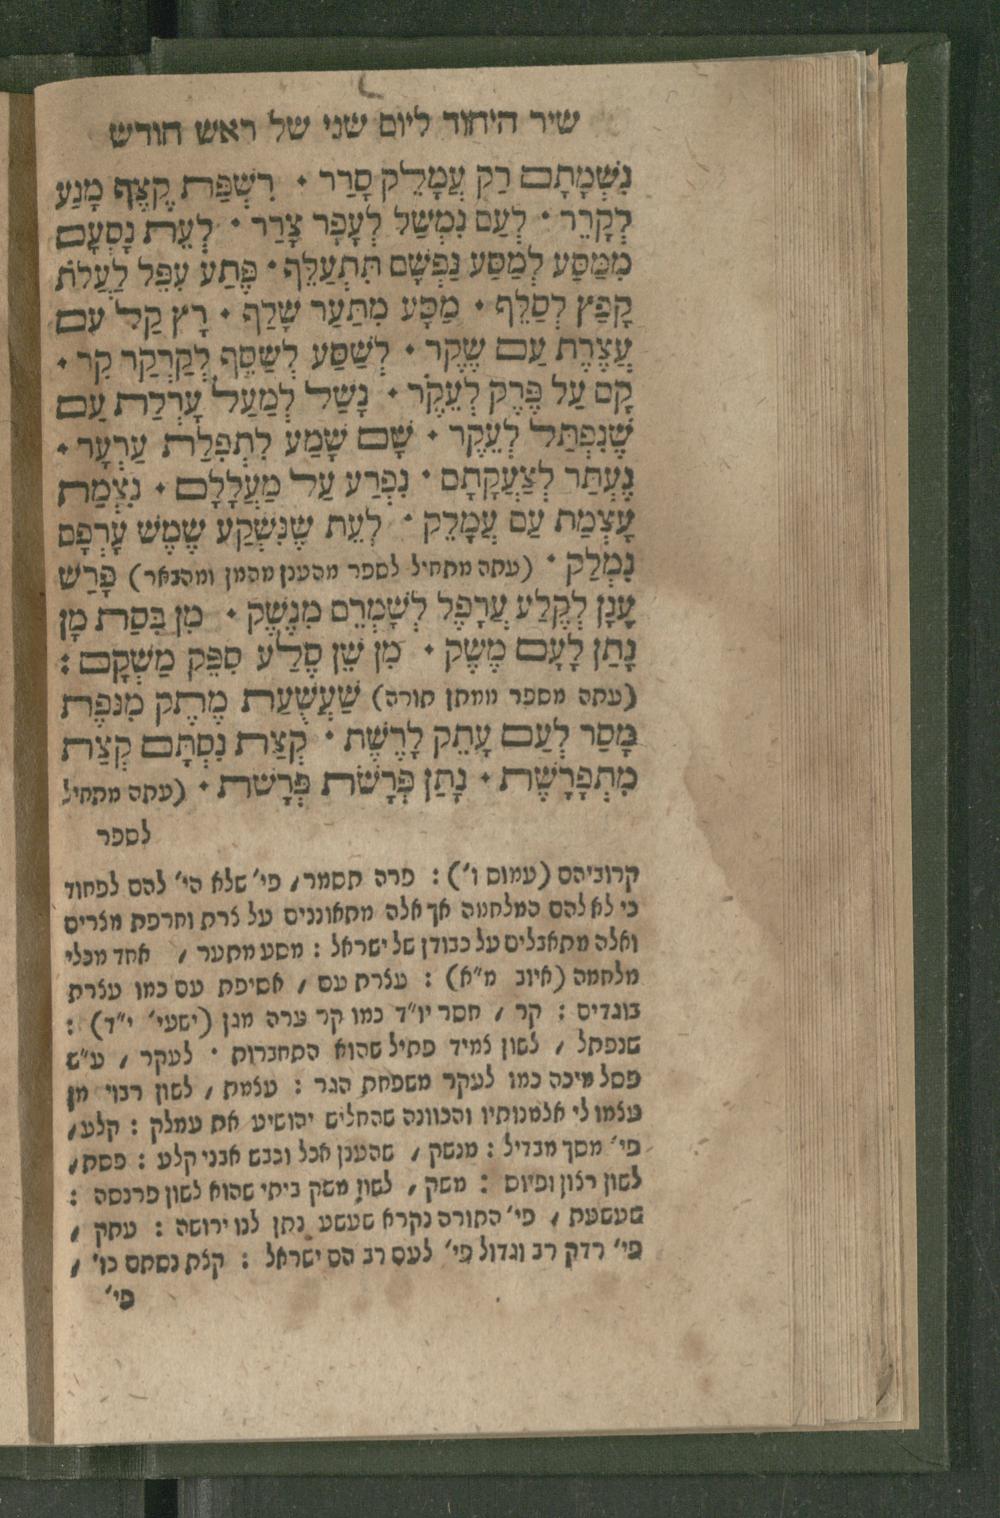 שיר היחוד ליום שני של ראש חודש
נִשְׁמָתָם רַק עֲמָלֵק סָרַר • רִשְׁפַּת קֶצֶף מָנַע
לְקָרֵר • לְעַם נִמְשַׁל לְעָפָר צָרַר • לְעֵת נָסְעָם
מִמַּסַּע לְמַסַּע נַפְשָׁם תִּתְעַלֵּף • פֶּתַע עִפֵּל לַעֲלֹת
קָפַץ לְסַלֵּף • מַסָּע מִתַּעַר שָׁלַף • רָץ קַל עִם
עֲצֶרֶת עַם שֶׁקֶר • לְשַׁסַּע לְשַׁסֵּף לְקַרְקַר קִר •
קָם עַל פֶּרֶק לְעַקֵּר • נָשַׁל לְמַעַל עָרְלַת עַם
שֶׁנִּפְתַּל לְעֵקֶר • שָׁם שָׁמַע לִתְפִלַּת עַרְעָר •
נֶעְתַּר לְצַעֲקָתָם • נִפְרַע עַל מַעֲלָלָם • נִצְמַת
עָצְמַת עַם עֲמָלֵק • לְעֵת שֶׁנִּשְׁקַע שֶׁמֶשׁ עָרְפָּם
נִמְלַק • (עתה מתחיל לספר מהענן מהמן ומהבאר) פָּרַשׂ
עָנָן לְקֶלַע עֲרָפֶל לְשָׁמְרֵם מִנֶּשֶׁק • מִן בִּסַּת מָן
נָתַן לָעָם מֶשֶׁק • מִן שֵׁן סֶלַע סִפֵּק מַשְׁקָם :
(עתה מספר ממתן תורה) שַׁעֲשֻׁעַת מֶתֶק מִנֹּפֶת
מָסַר לְעַם עָתֵק לָרֶשֶׁת • קְצַת נִסְתָּם קְצַת
מִתְפָּרֶשֶׁת • נָתַן פְּרָשַׁת פְּרָשַׁת • (עתה מתחיל
לספר
קרוביהם (עמוס ו') : פרה תסמר, פי' שלא הי' להם לפחוד
כי לא להם המלחמה אך אלה מתאוננים על צרת וחרפת מצרים
ואלה מתאבלים על כבודן של ישראל : מסע מתער , אחד מכלי
מלחמה (איוב מ"א) : עצרת עם , אסיפת עם כמו עצרת
בוגדים : קר , חסר יו"ד כמו קר ערה מגן (ישעי' י"ד) :
שנפתל , לשון צמיד פתיל שהוא התחברות • לעקר , ע"ש
פסל מיכה כמו לעקר משפחת הגר : עצמת , לשון רבוי מן
עצמו לי אלמנותיו והכוונה שהחליש יהושיע את עמלק : קלע,
פי' מסך מבדיל : מנשק , שהענן אכל וכבש אבני קלע : פסת,
לשון רצון ופיוס : משק , לשון משק ביתי שהוא לשון פרנסה :
שעשעת , פי' התורה נקרא שעשע נתן לנו ירושה : עתק ,
פי' רדק רב וגדול פי' לעם רב הם ישראל : קצת נסתם כו' ,
פי'